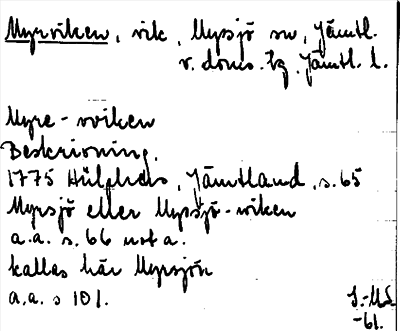 Myrviken, vik, Myssjö sn, Jämtl.
v. doms. tg, Jämtl. l.
Myre-wiken
Beskrivning.
1775 Hülphers, Jämtland, s. 65
Myrsjö eller Myssjö-wiken
a.a. s. 66 nota.
kallas här Myrsjön
a.a. s 101.
-61.